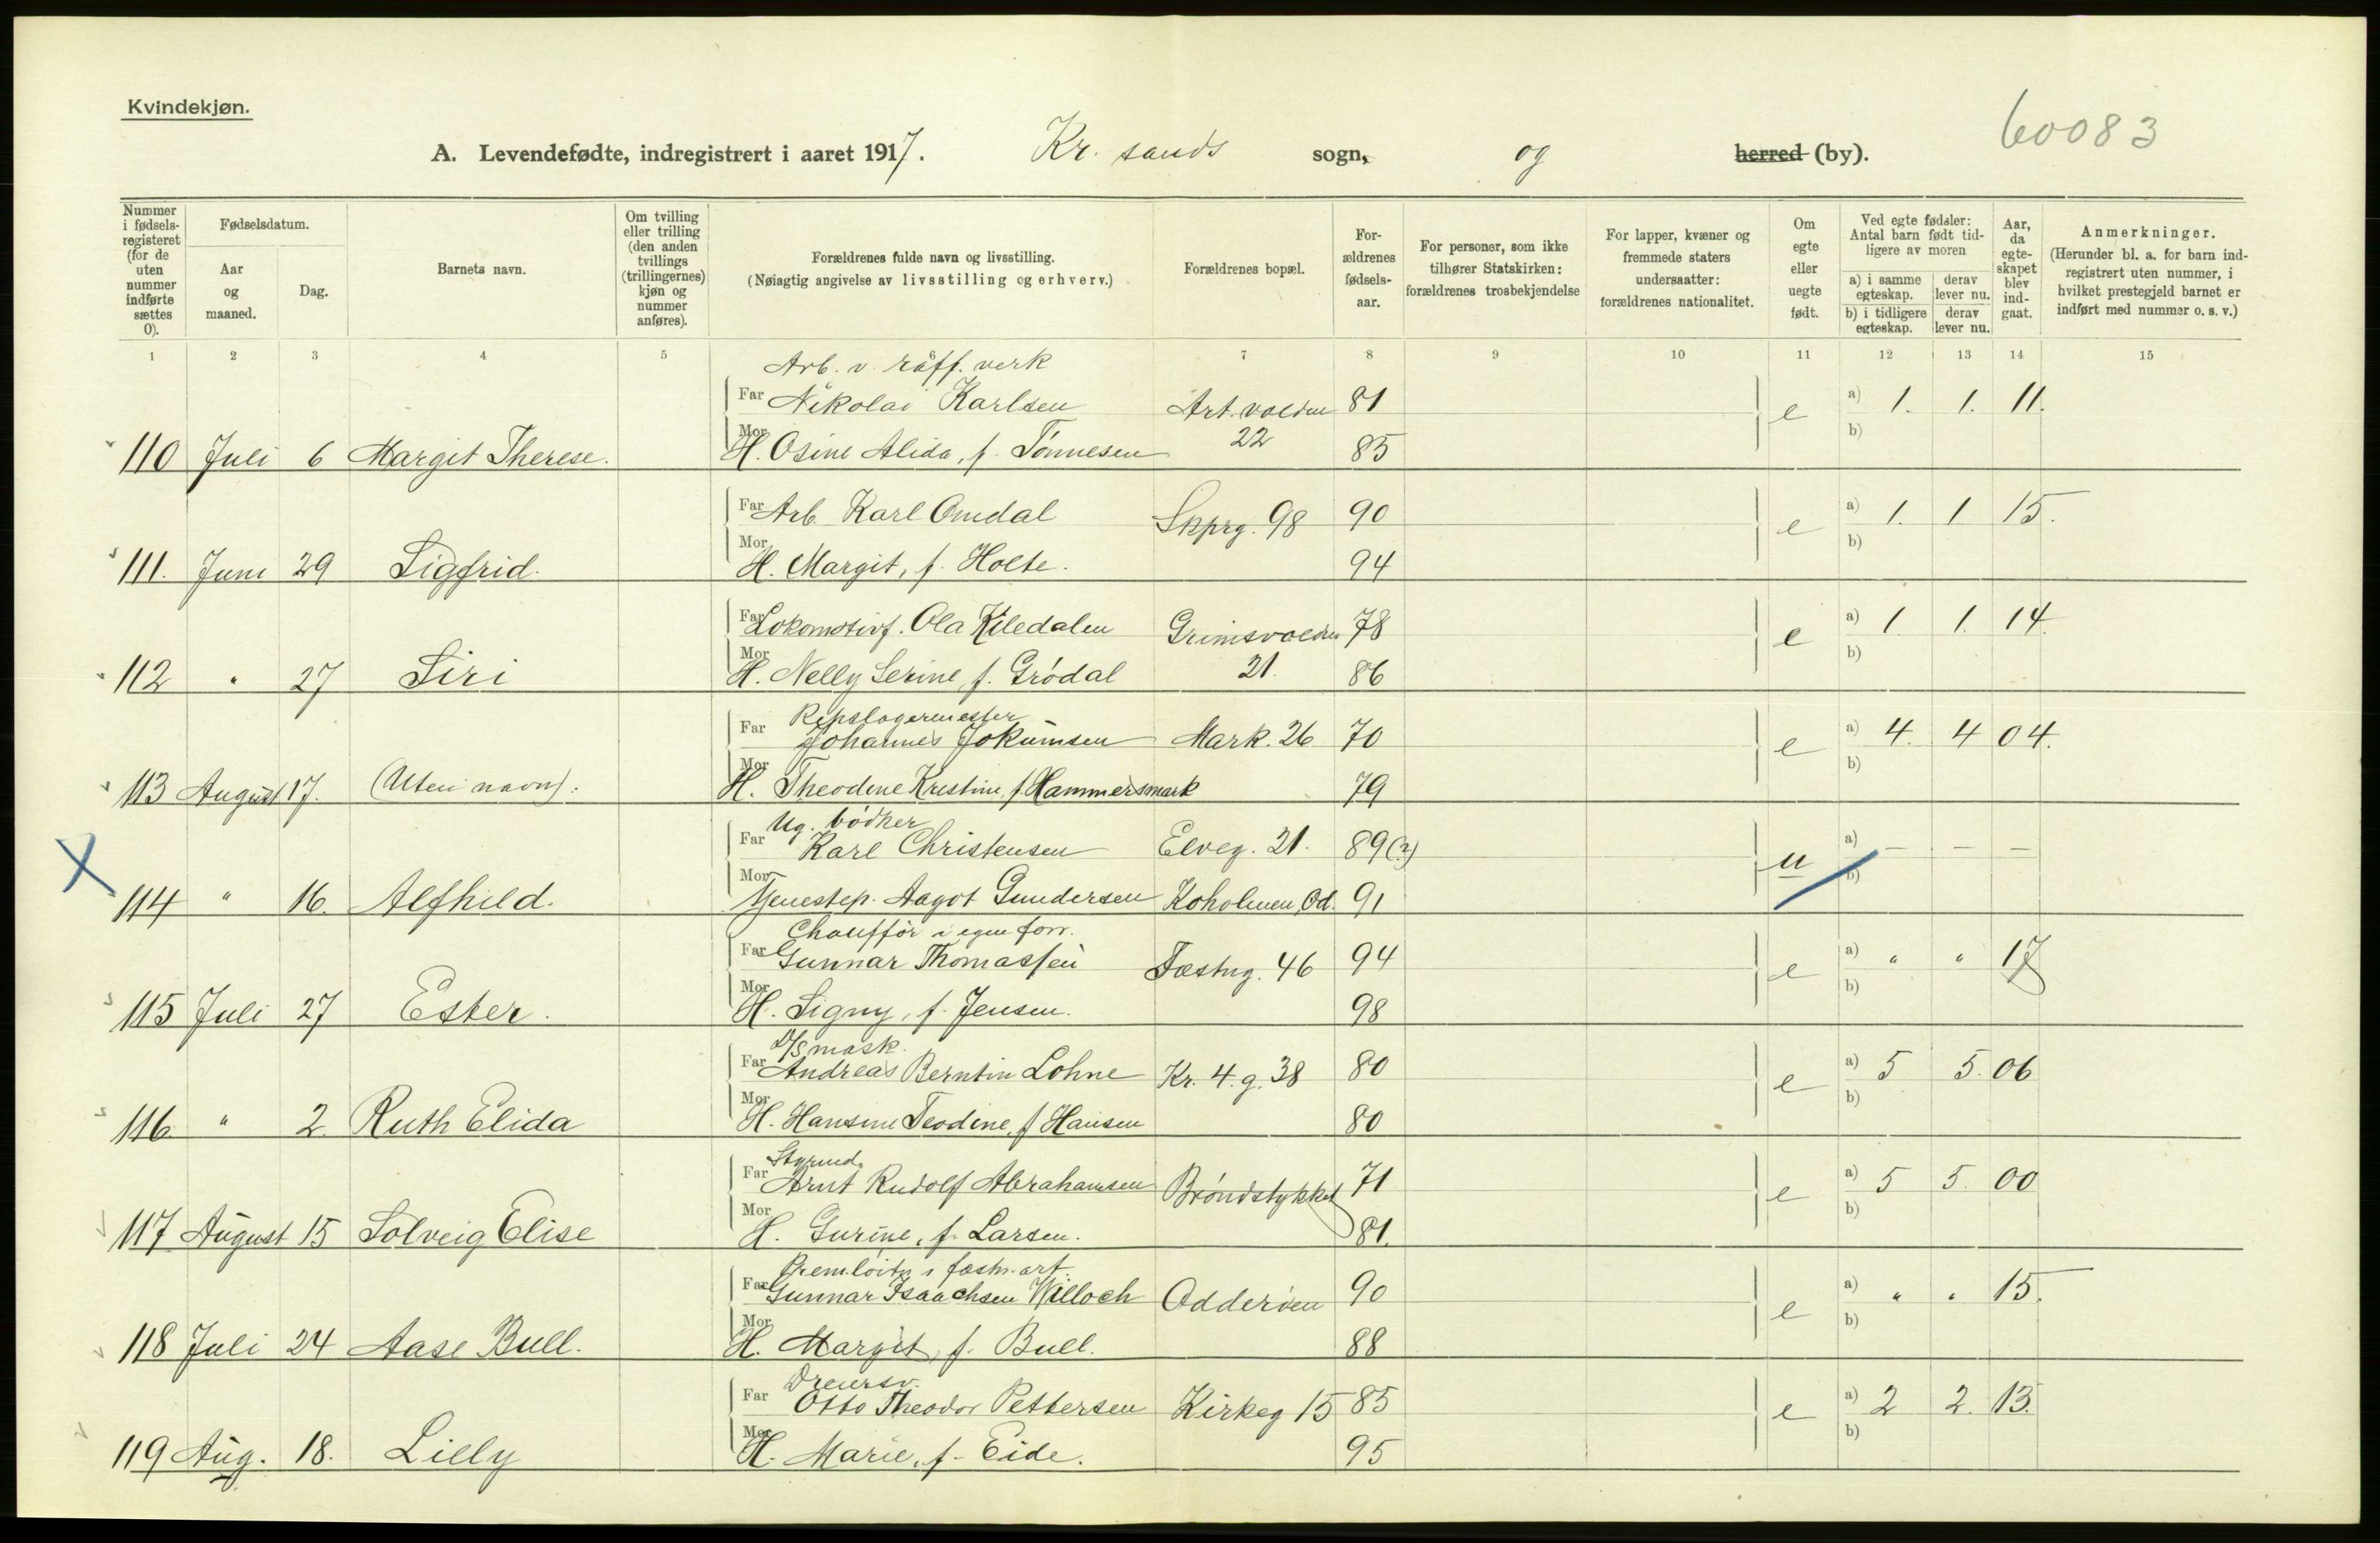 Kvindekjøn.
60083
A. Levendefødte, indregistrert i aaret 1917. Kr. sands sogn, og herred (by).
Nummer i fødsels-registeret (for de uten nummer indførte sættes 0).
Fødselsdatum.
Aar og maaned.
Dag.
Barnets navn.
Om tvilling eller trilling (den anden tvillings (trillingernes) kjøn og nummer anføres).
Forældrenes fulde navn og livsstilling.
(Nøiagtig angivelse av livsstilling og erhverv.)
Forældrenes bopæl.
For-ældrenes fødsels-aar.
For personer, som ikke tilhører Statskirken: forældrenes trosbekjendelse
For lapper, kvæner og fremmede staters undersaatter: forældrenes nationalitet.
Om egte eller uegte født.
Ved egte fødsler: Antal barn født tid-ligere av moren
a) i samme egteskap. derav lever nu.
b) i tidligere egteskap. derav lever nu.
Aar, da egte-skapet blev ind-gaat.
Anmerkninger.
(Herunder bl. a. for barn ind-registrert uten nummer, i hvilket prestegjeld barnet er indført med nummer o. s. v.)
1 2 3 4 5 7 8 9 10 11 12 13 14 15
Arb. v. raff. verk
Far Nikolai Karlsen Art. volden 81 e a) 1. 1. 11.
22 b)
110 Juli 6 Margit Therese. Mor H. Osine Alida, f. Tønnesen 85
Far Arb. Karl Omdal Skprg. 98 90 e a) 1. 1 15.
b)
111. Juni 29 Sigfrid. Mor H. Margit, f. Holte. 94
Far Lokomotivf. Ola Kiledalen Grimsvolden 78 e a) 1 1. 14.
b)
112 " 27 Siri Mor H. Nelly Serine, f. Grødal 21. 86
Repslagermester
Far Johannes Jokumsen Mark. 26 70 e a) 4. 4 04.
b)
113 August 17. (Uten navn). Mor H. Theodine Kristine, f. Hammersmark 79
Ug. bødker
Far Karl Christensen Elveg. 21. 89(?) u a) – – –
b)
114 " 16. Alfhild. Mor Tjenestep. Aagot Gundersen Koholmen, Od. 91
Chauffør i egen forr.
Far Gunnar Thomassen Fæstng. 46 94 e a) " " 17
b)
115 Juli 27 Ester. Mor H. Signy, f. Jensen. 98
D/S mask.
Far Andreas Berntin Lohne Kr. 4. g. 38 80 e a) 5 5. 06
b)
116 " 2. Ruth Elida Mor H. Hansine Teodine, f. Hansen 80
Styrmd.
Far Arnt Rudolf Abrahamsen Brøndstykket 71 e a) 5 5. 00
b)
117 August 15 Solveig Elise Mor H. Gurine, f. Larsen. 81.
Premløitn i fæstn. art.
Far Gunnar Isaachsen Willoch Odderøen 90 e a) " " 15.
b)
118 Juli 24 Aase Bull. Mor H. Margit, f. Bull. 88
Dreiersv.
Far Otto Theodor Pettersen Kirkeg 15 85 e a) 2 2. 13.
b)
119 Aug. 18. Lilly Mor H. Marie, f. Eide. 95